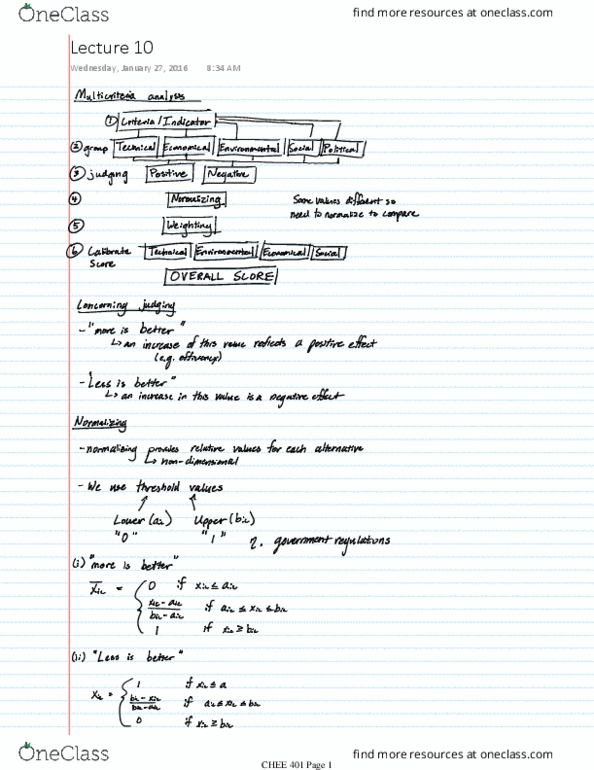 OneClass
find more resources at oneclass.com
Lecture 10
Wednesday, January 27, 2016 8:34 AM
Multicriteria analysis
① Criteria/Indicator
② group Technical Economical Environmental Social Political
③ judging Positive Negative
④ Normalizing Some values different so
need to normalize to compare
⑤ Weighting
⑥ Calibrate Technical Environmental Economical Social
Score
OVERALL SCORE
Concerning judging
- "more is better"
↳ an increase of this value reflects a positive effect
(e.g. efficiency)
- Less is better"
↳ an increase in this value is a negative effect
Normalizing
- normalizing provides relative values for each alternative
↳ non-dimensional
- We use threshold values
Lower (aᵢₖ) Upper (bᵢₖ)
"0" "1" government regulations
(i) "more is better"
x̄ᵢₖ = { 0 if xᵢₖ ≤ aᵢₖ
xᵢₖ - aᵢₖ / bᵢₖ - aᵢₖ if aᵢₖ ≤ xᵢₖ ≤ bᵢₖ
1 if xᵢₖ ≥ bᵢₖ
(ii) "Less is better"
xᵢₖ = { 1 if xᵢₖ ≤ a
bᵢₖ - xᵢₖ / bᵢₖ - aᵢₖ if aᵢₖ ≤ xᵢₖ ≤ bᵢₖ
0 if xᵢₖ ≥ bᵢₖ
OneClass
find more resources at oneclass.com
CHEE 401 Page 1